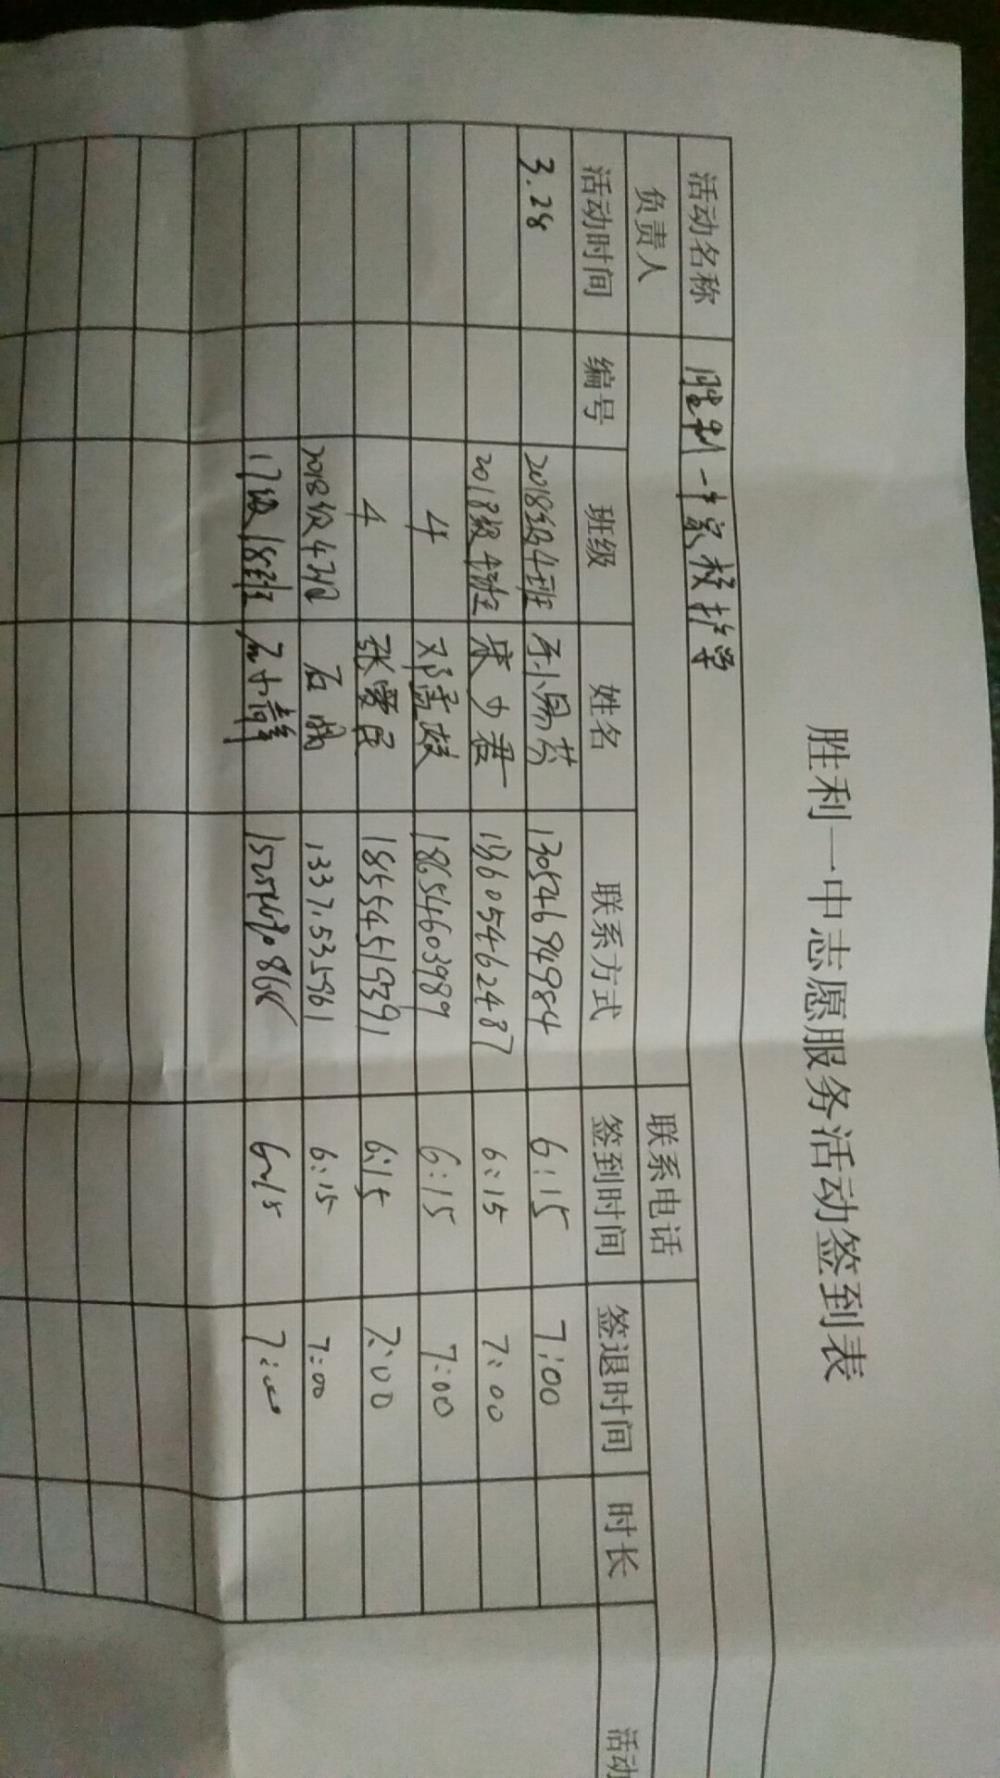 胜利一中志愿服务活动签到表
活动名称 胜利一中家校护学
负责人 联系电话
活动时间 编号 班级 姓名 联系方式 签到时间 签退时间 时长 活动
3.28 2018级4班 13054694984 6:15 7:00
2018级4班 宋少君 18605462487 6:15 7:00
4 邓孟姣 18654603989 6:15 7:00
4 张爱民 18554519391 6:15 7:00
2018级4班 石 1337.535961 6:15 7:00
17级18班 6:15 7:00